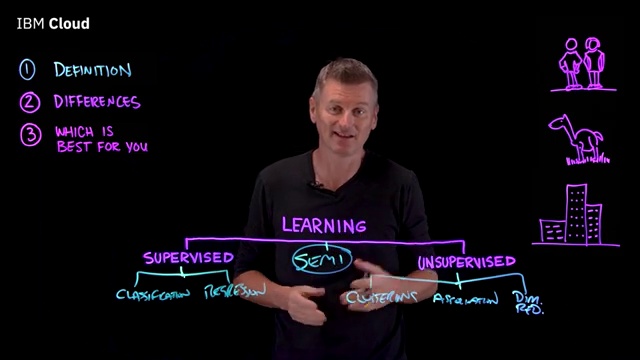 IBM Cloud
1 DEFINITION
2 DIFFERENCES
3 WHICH IS
BEST FOR YOU
LEARNING
SUPERVISED
SEMI
UNSUPERVISED
CLASSIFICATION
REGRESSION
CLUSTERING
ASSOCIATION
DIM.
RED.